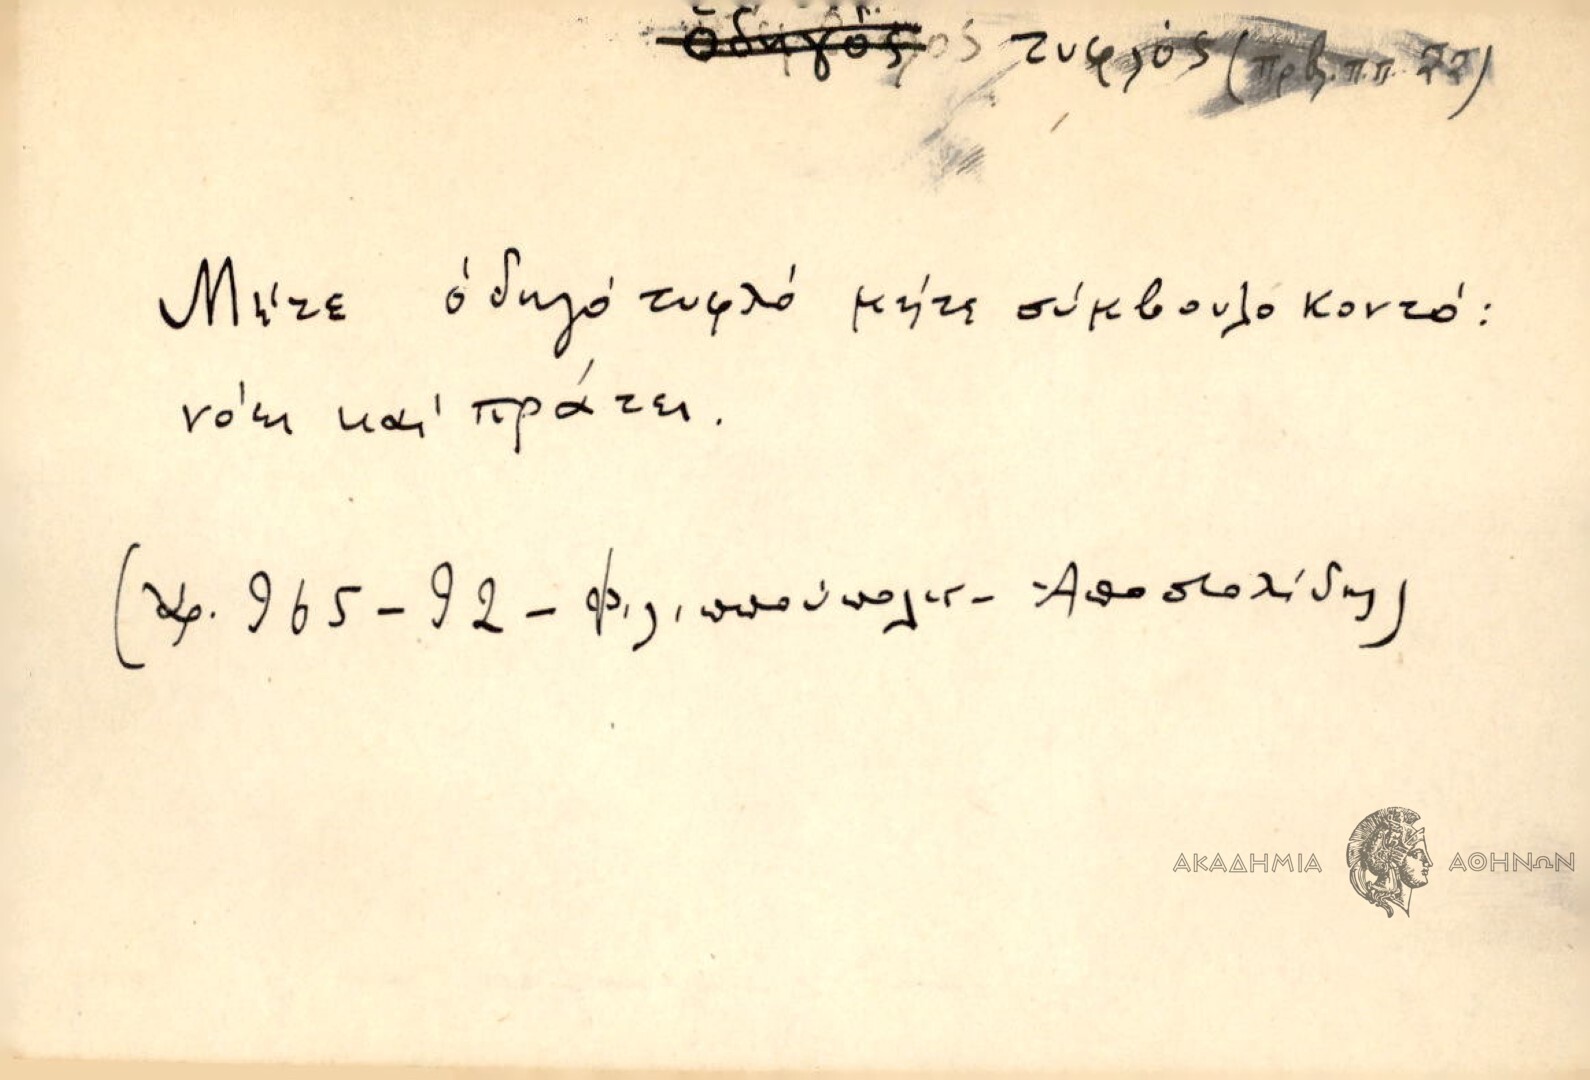 ὁδηγὸς τυφλός (πρβ. π.π. 22)
Μήτε ὁδηγό τυφλό μήτε σύμβουλο κοντό:
νόει και πράτει.
(χφ. 965-92-Φιλιππούπολις-Αποστολίδης)
ΑΚΑΔΗΜΙΑ ΑΘΗΝΩΝ